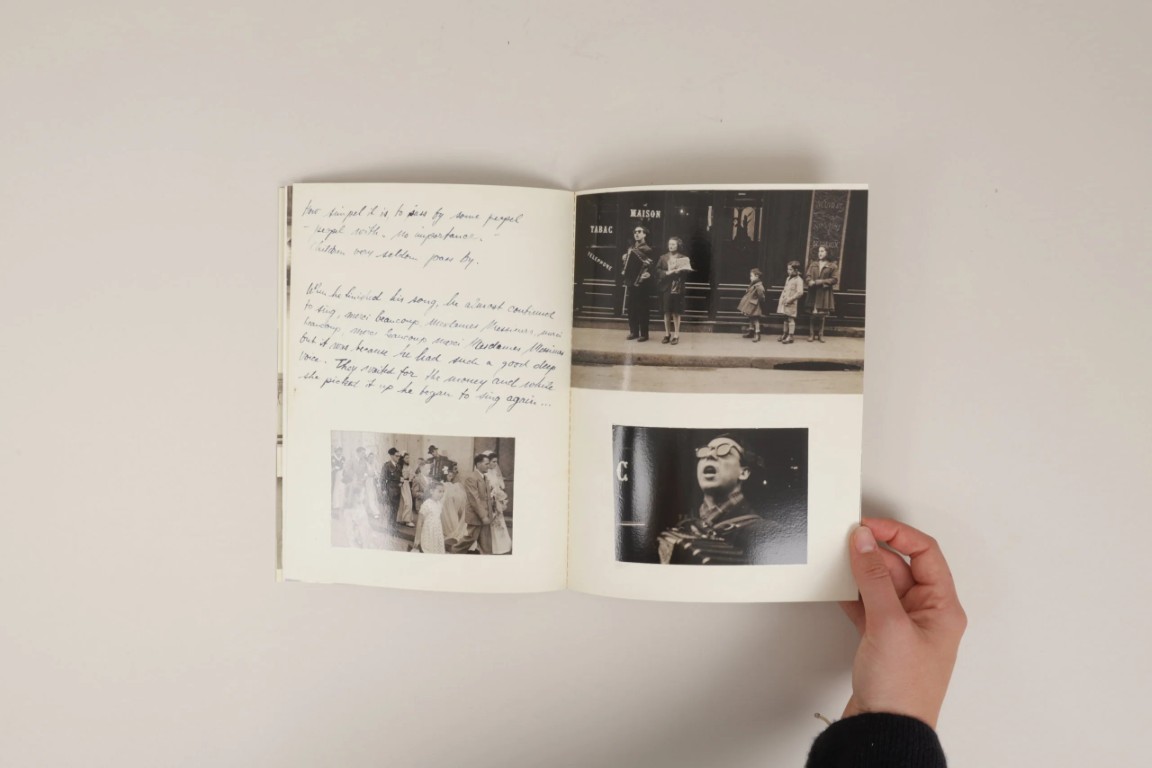 How simpel it is to pass by some peopel
- peopel with no importance. -
Children very seldom pass by.
When he finished his song, he almost continued
to sing, merci beaucoup, Mesdames Messieurs, merci
beaucoup, merci beaucoup merci Mesdames, Messieurs
but it was because he had such a good deep
voice. They waited for the money and while
she picked it up he began to sing again...
MAISON
TABAC
TELEPHONE
C